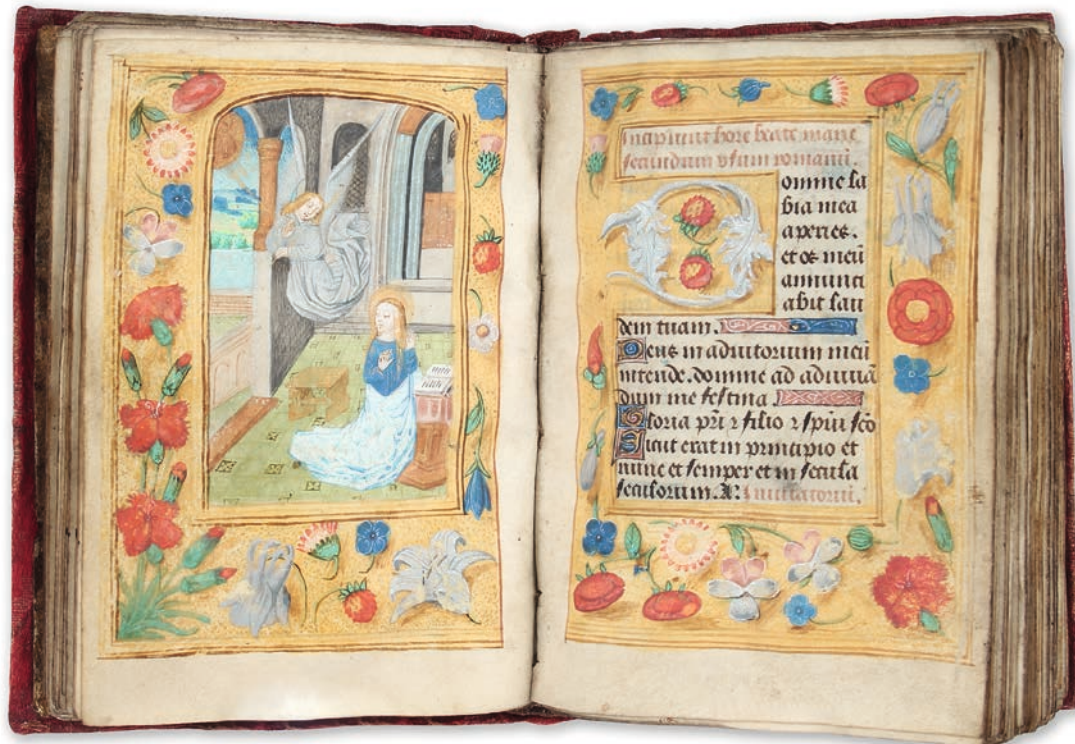 Incipiunt hore beate marie
secundum usum romanū.
Domine la
bia mea
aperies.
et os meū
annunci
abit lau
dem tuam.
Deus in adiutorium meū
intende. domine ad adiuuā
dum me festina.
Gloria pr̄i ⁊ filio ⁊ spiui sc̄o
Sicut erat in principio et
nunc et semper et in secula
seculorum. A: Inuitatoriū.